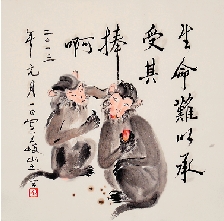 生命難以承
受其
捧
啊
二〇一三
年元月一日